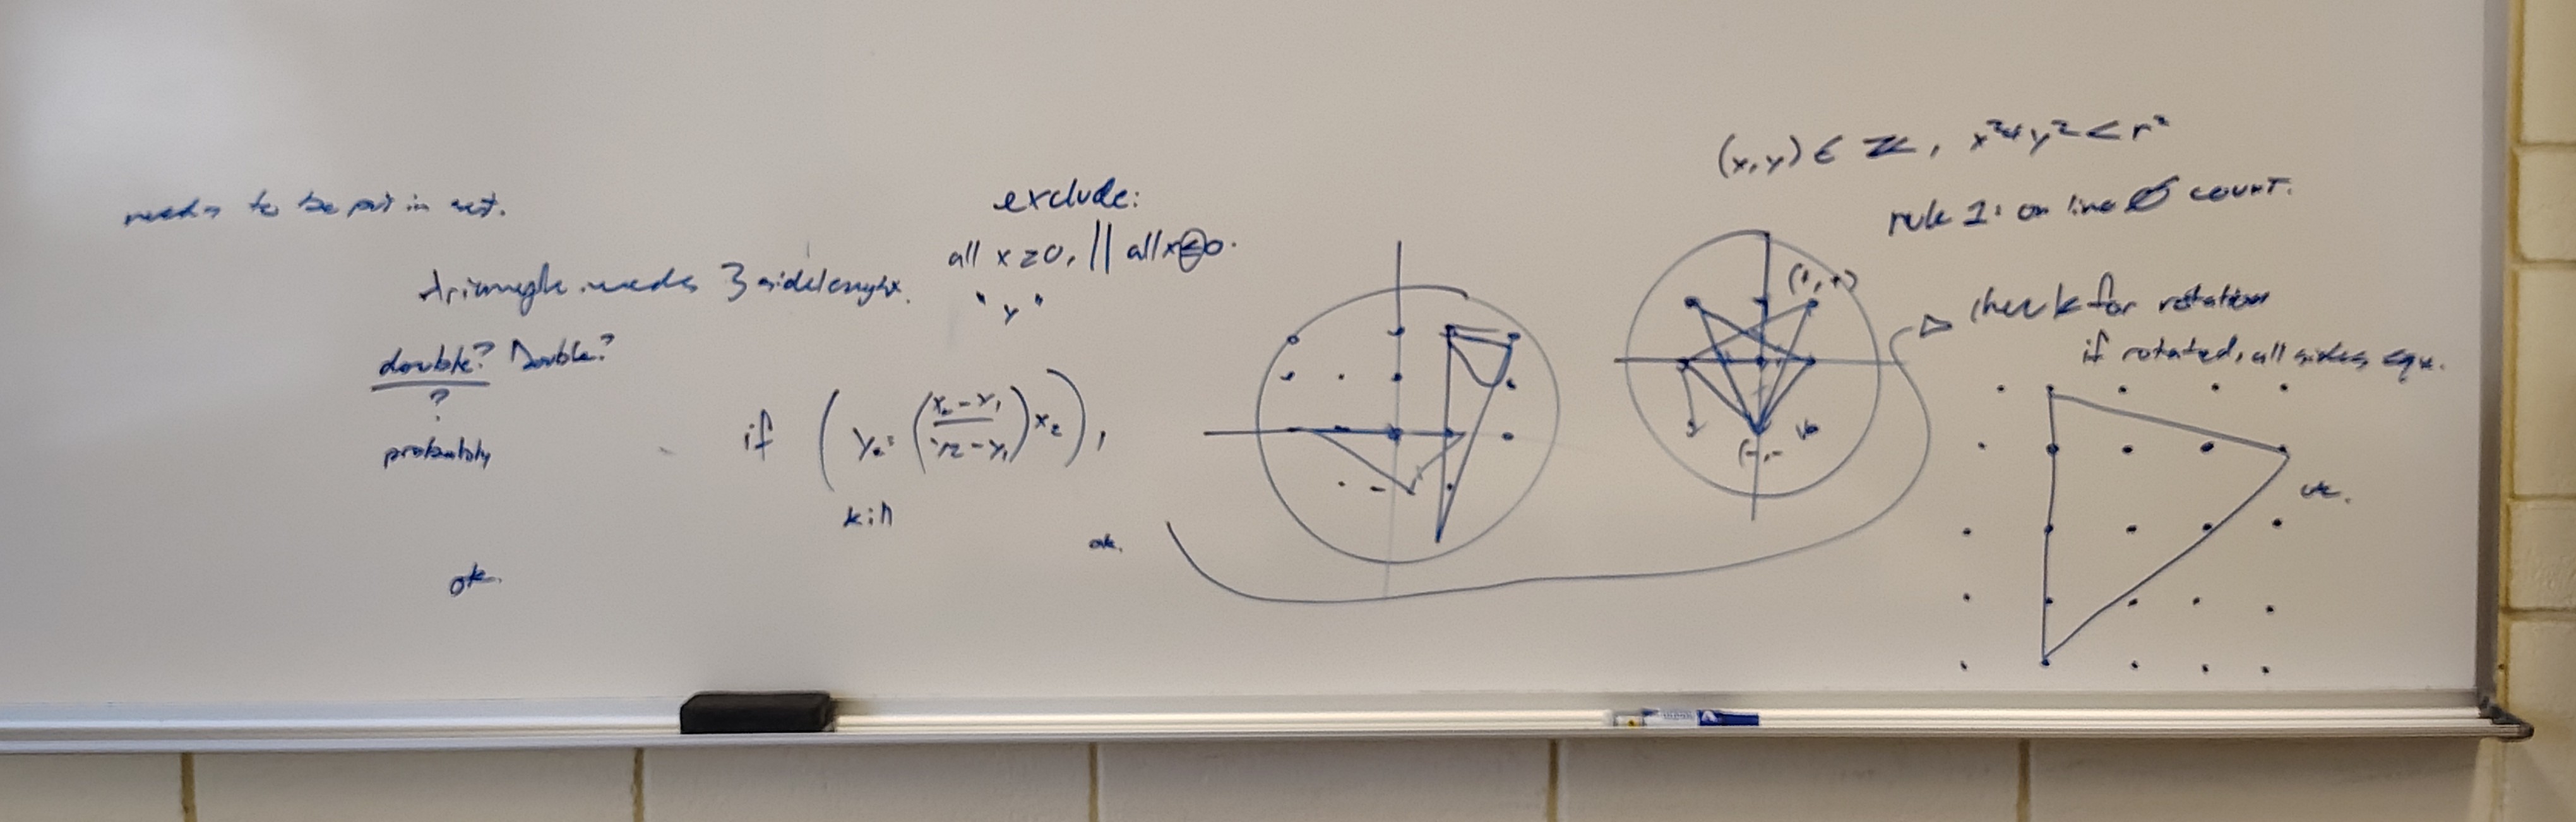 needs to be put in set.
triangle needs 3 sidelength.
double? Double?
?
probably
ok.
exclude:
all x≥0, || all x≤0.
" y "
if ( y₂ = ( x₂-x₁ / y₂-y₁ ) x₂ ),
kill
ok.
(x,y) ∈ ℤ, x²+y² < r²
rule 1: on line Ø count.
(+,+)
(-,-
check for rotation
if rotated, all sides equ.
ok.